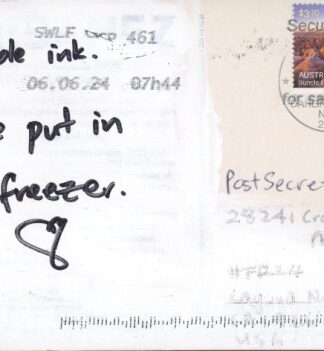 SWLF DCP 461
06.06.24 07h44
ble ink.
e put in
freezer.
$3.70
Secu
AUSTR
for sa
PostSecre
28241 Cr
#F224
Laguna N
USA